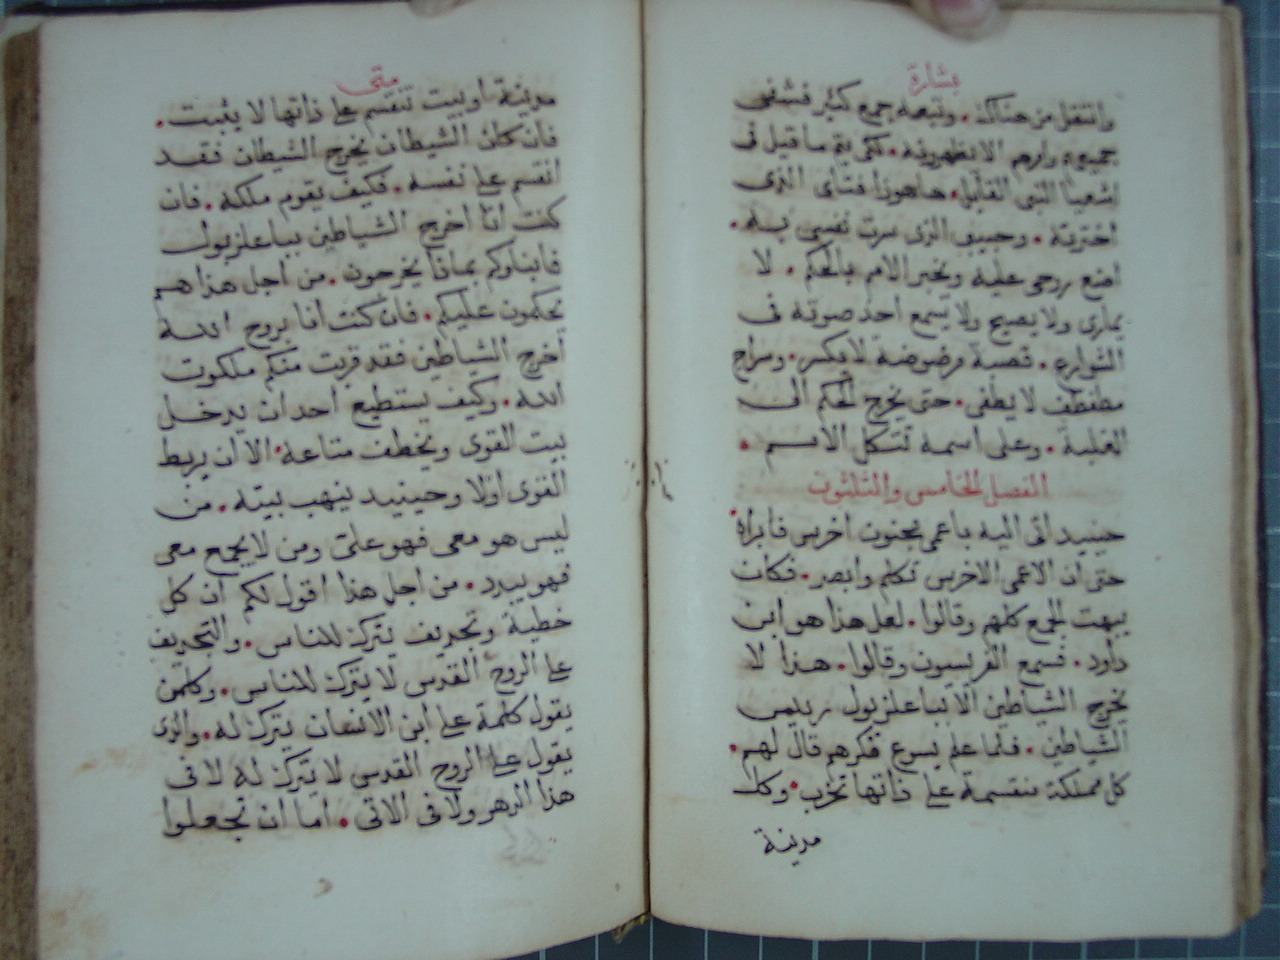 بشارة
وانتقل من هناك. وتبعه جمع كثير فشفى
جميعهم وامرهم الا يظهرونه. لكى يتم ما قيل فى
اشعيا النبى القايل. هاهوذا فتاى الذى
اخترته. وحبيبى الذى سرت نفسى به.
اضع روحى عليه ويخبر الامم بالحكم. لا
يمارى ولا يصيح ولا يسمع احد صوته فى
الشوارع. قصبة مرضوضة لا يكسر. وسراج
مطفطف لا يطفى. حتى يخرج الحكم الى
الغلبة. وعلى اسمه تتكل الامم.
الفصل الخامس والثلثون
حينيد اتى اليه باعمى مجنون اخرس فابراه
حتى ان الاعمى الاخرس تكلم وابصر. فكان
يبهت الجمع كلهم وقالوا. لعل هذا هو ابن
داود. فسمع الفريسيون وقالوا. هذا لا
يخرج الشياطين الا بباعلزبول رييس
الشياطين. فلما علم يسوع فكرهم قال لهم.
كل مملكة منقسمة على ذاتها تخرب. وكل
مدينة
متى
مدينة او بيت تنقسم على ذاتها لا يثبت.
فان كان الشيطان يخرج الشيطان فقد
انقسم على نفسه. فكيف يقوم ملكه. فان
كنت انا اخرج الشياطين بباعلزبول
فابناوكم بماذا يخرجون. من اجل هذا هم
يحكمون عليكم. فان كنت انا بروح الله
اخرج الشياطين فقد قربت منكم ملكوت
الله. وكيف يستطيع احد ان يدخل
بيت القوى ويخطف متاعه. الا ان يربط
القوى اولا وحينيد ينهب بيته. من
ليس هو معى فهو على ومن لا يجمع معى
فهو يبدد. من اجل هذا اقول لكم ان كل
خطية وتجديف يترك للناس. والتجديف
على الروح القدس لا يترك للناس. وكلمن
يقول كلمة على ابن الانسان يترك له. والذى
يقول على الروح القدس لا يترك له لا فى
هذا الدهر ولا فى الاتى. اما ان تجعلوا